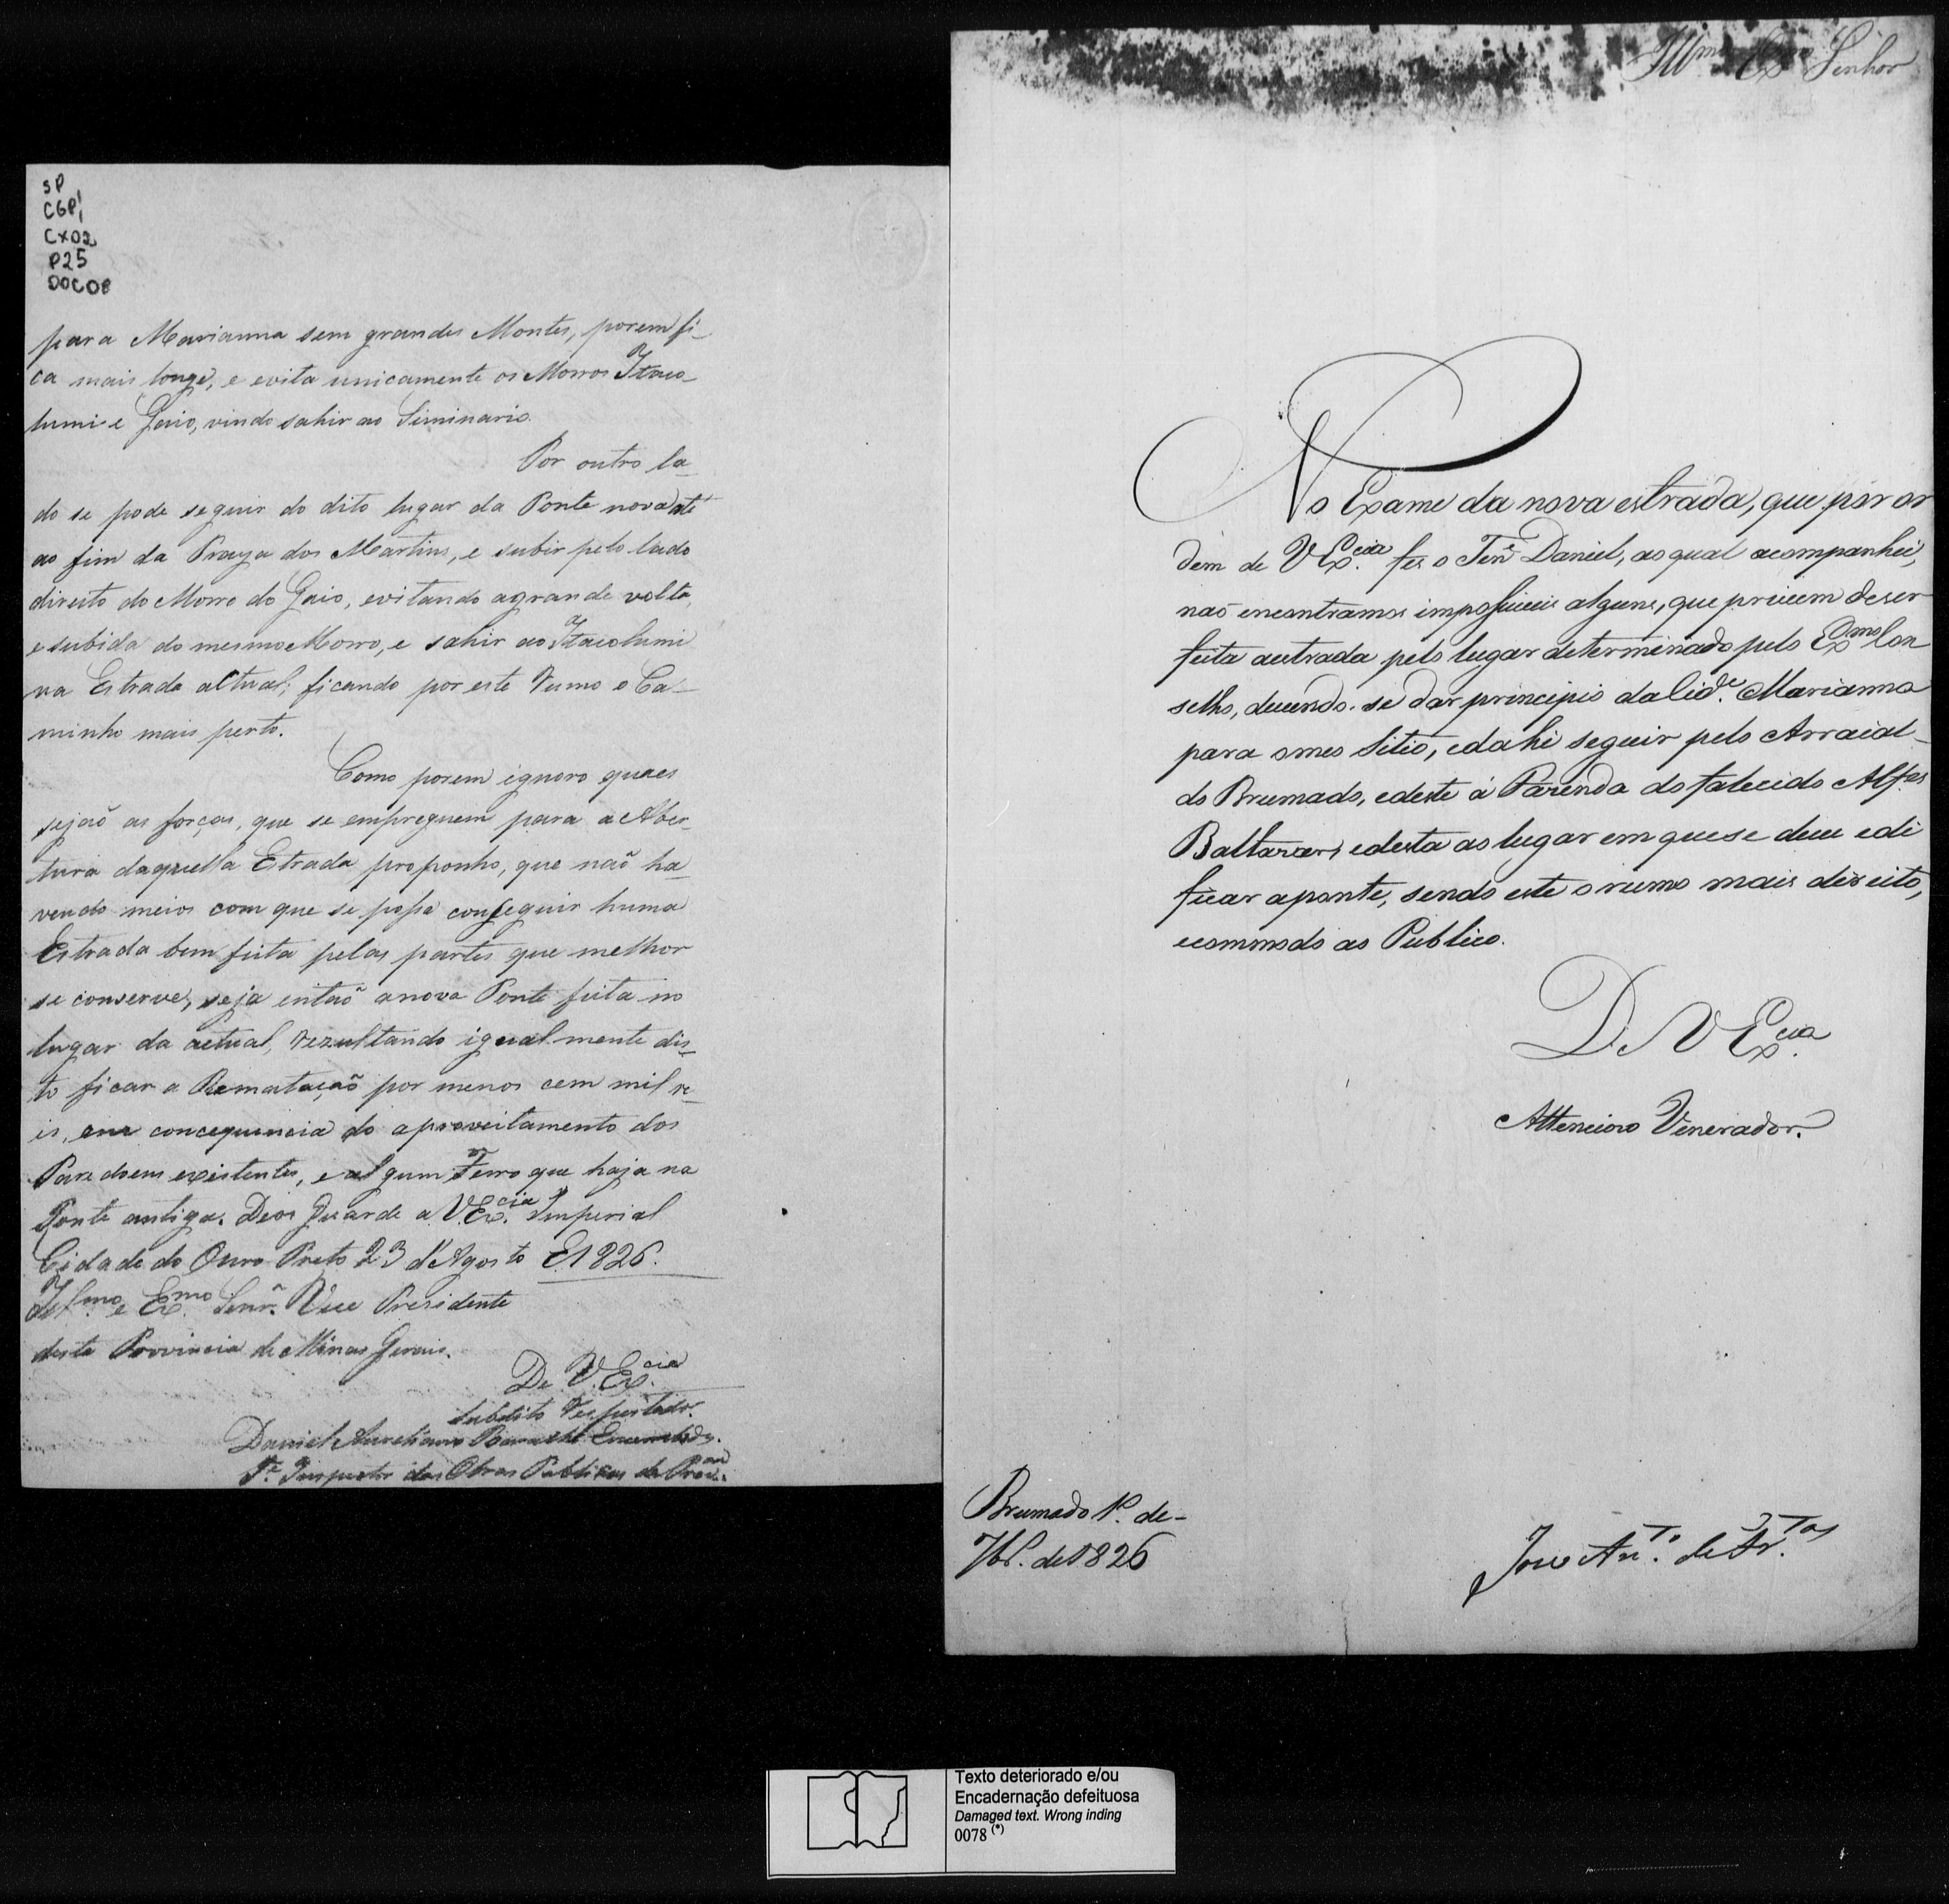 SP
CGP1
CX02
P25
DOC08
para Marianna sem grandes Montes, porem fi_
ca mais longe, e evita unicamente os Morros Itaco_
lumi e Gaio, vindo sahir ao Siminario.
Por outro la_
do se pode seguir do dito lugar da Ponte nova até
ao fim da Praya dos Martins, e subir pelo lado
direito do Morro do Gaio, evitando a grande volta,
e subida do mesmo Morro, e sahir ao Itacolumi
na Estrada actual; ficando por este Rumo o Ca_
minho mais perto.
Como porem ignoro quaes
sejaõ as forças, que se empreguem para a Aber_
tura daquella Estrada proponho, que naõ ha_
vendo meios com que se possa conseguir huma
Estrada bem feita pelas partes que melhor
se conserve, seja entaõ a nova Ponte feita no
lugar da actual, rezultando igualmente dis_
to ficar a Rematação por menos cem mil re_
is, em concequencia do aproveitamento dos
Paredoens existentes, e algum Ferro que haja na
Ponte antiga. Deos Guarde a V. Ex.cia Imperial
Cidade do Ouro Preto 23 d'Agosto 1826.
Illmo e Exmo Senr. Vice Presidente
desta Provincia de Minas Geraes.
De V. Ex.cia
Subdito Respeitador.
Daniel Aureliano
Te. Inspector das Obras Publicas da
Illmo Exmo Senhor
No Exame da nova estrada, que por or
dem de V Ex.cia fes o Tene Daniel, ao qual acompanhei,
naõ encontramos impossiveis alguns, que privem de ser
feita a estrada pelo lugar determinado pelo Exmo Con
selho, devendo-se dar principio da Cide. Marianna
para o meo Sitio, e dahi seguir pelo Arraial_
do Brumado, e deste á Fazenda do falecido Alfes
Baltazar, e desta ao lugar em que se deve edi
ficar a ponte, sendo este o rumo mais direito,
e commodo ao Publico.
De V Ex.cia
Attencioso Venerador.
Brumado 1º. de_
7br. de 1826
Joze Anto. de
Texto deteriorado e/ou
Encadernação defeituosa
Damaged text. Wrong inding
0078 (*)